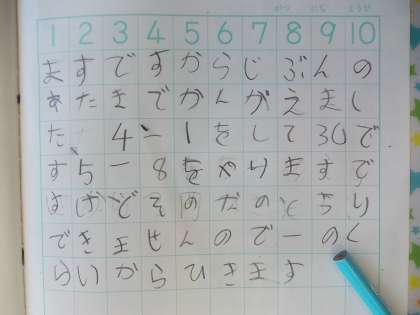 がつ にち ようび
1 2 3 4 5 6 7 8 9 10
ますですからじぶんの
あたまでかんがえまし
た、4-1をして30で
す5-8をやりますで
すけどそのだのとちり
できませんので一のく
らいからひきます